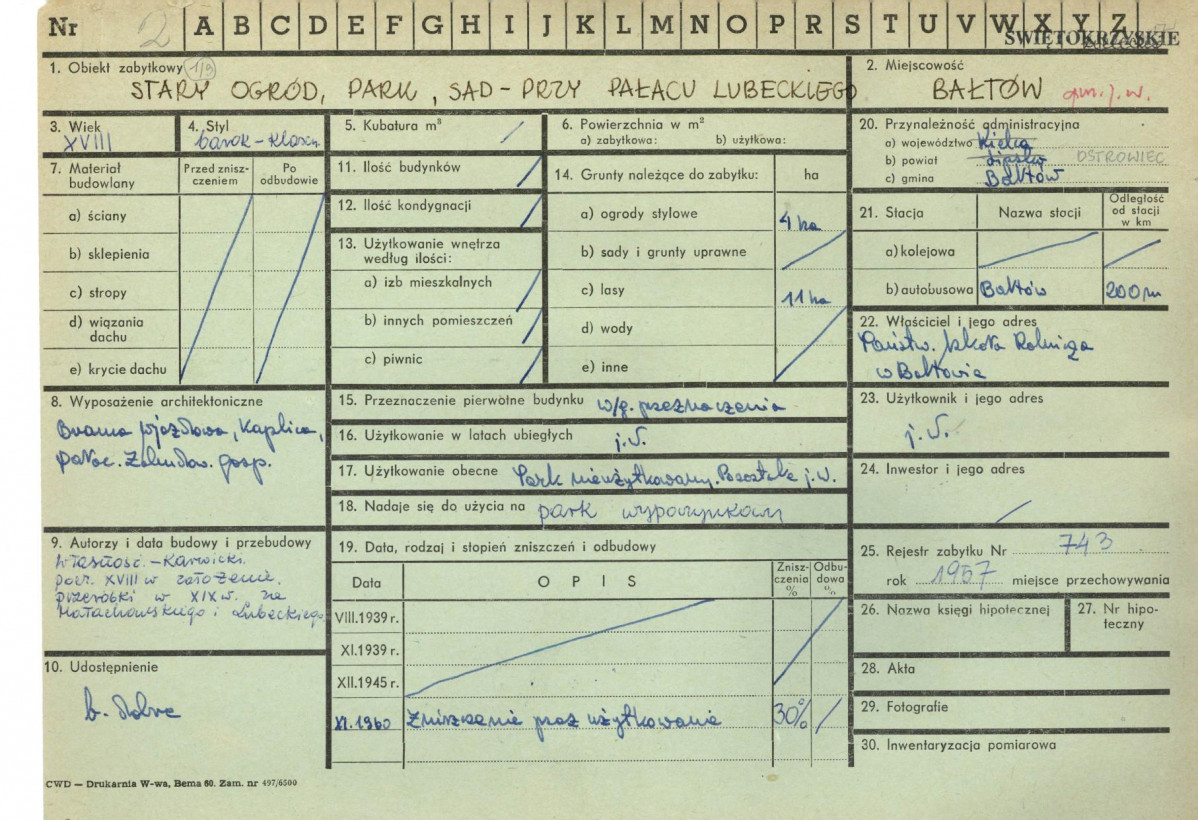 Nr 2 A B C D E F G H I J K L M N O P R S T U V W X Y Z
ŚWIĘTOKRZYSKIE
1. Obiekt zabytkowy 1/9
STARY OGRÓD, PARK, SAD - PRZY PAŁACU LUBECKIEGO
2. Miejscowość
BAŁTÓW gm. j. w.
3. Wiek
XVIII
4. Styl
barok - klasn.
5. Kubatura m³
6. Powierzchnia w m²
a) zabytkowa: b) użytkowa:
7. Materiał budowlany
Przed zniszczeniem
Po odbudowie
a) ściany
b) sklepienia
c) stropy
d) wiązania dachu
e) krycie dachu
11. Ilość budynków
12. Ilość kondygnacji
13. Użytkowanie wnętrza
według ilości:
a) izb mieszkalnych
b) innych pomieszczeń
c) piwnic
14. Grunty należące do zabytku: ha
a) ogrody stylowe 4 ha
b) sady i grunty uprawne
c) lasy 11 ha
d) wody
e) inne
20. Przynależność administracyjna
a) województwo Kielce
b) powiat Lipsko OSTROWIEC
c) gmina Bałtów
21. Stacja
Nazwa stacji
Odległość od stacji w km
a) kolejowa
b) autobusowa Bałtów 200 m
22. Właściciel i jego adres
Państw. Szkoła Rolnicza
w Bałtowie
8. Wyposażenie architektoniczne
Brama wjazdowa, Kaplica,
pałac. Zabudow. gosp.
15. Przeznaczenie pierwotne budynku w/g. przeznaczenia
16. Użytkowanie w latach ubiegłych j.w.
17. Użytkowanie obecne Park nieużytkowany. Pozostałe j.w.
18. Nadaje się do użycia na park wypoczynkowy
23. Użytkownik i jego adres
j.w.
24. Inwestor i jego adres
9. Autorzy i data budowy i przebudowy
Własność. - Karwicki.
pocz. XVIII w założenie.
przeróbki w XIX w. za
Małachowskiego i Lubeckiego
10. Udostępnienie
b. dobre
19. Data, rodzaj i stopień zniszczeń i odbudowy
Data
OPIS
Zniszczenia %
Odbudowa %
VIII.1939 r.
XI.1939 r.
XII.1945 r.
XI.1960 Zniszczenie przez użytkowanie 30%
25. Rejestr zabytku Nr 743
rok 1957 miejsce przechowywania
26. Nazwa księgi hipotecznej
27. Nr hipoteczny
28. Akta
29. Fotografie
30. Inwentaryzacja pomiarowa
CWD — Drukarnia W-wa, Bema 60. Zam. nr 497/6500